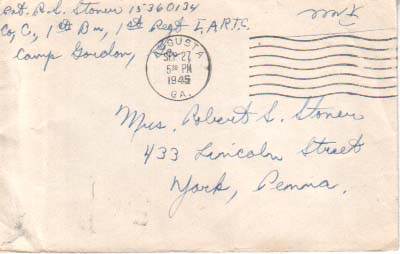 Pvt. R.S. Stoner 15360134
Co, C, 1st Bn, 1st Regt I,ARTC.
Camp Gordon, Ga.
AUGUSTA
SEP 27
5 30 PM
1945
GA.
Free
Mrs. Robert S. Stoner
433 Lincoln Street
York, Penna.